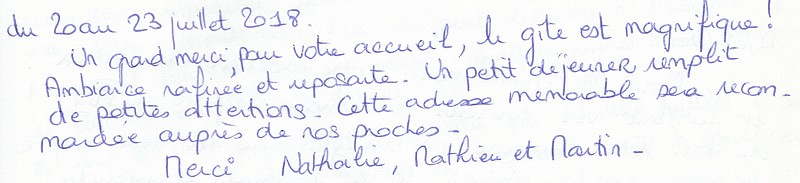 du 20 au 23 juillet 2018.
Un grand merci pour votre accueil, le gîte est magnifique !
Ambiance rafinée et reposante. Un petit déjeuner remplit
de petites attentions. Cette adresse memorable sera recom-
mandée auprès de nos proches -
Merci Nathalie, Mathieu et Martin -